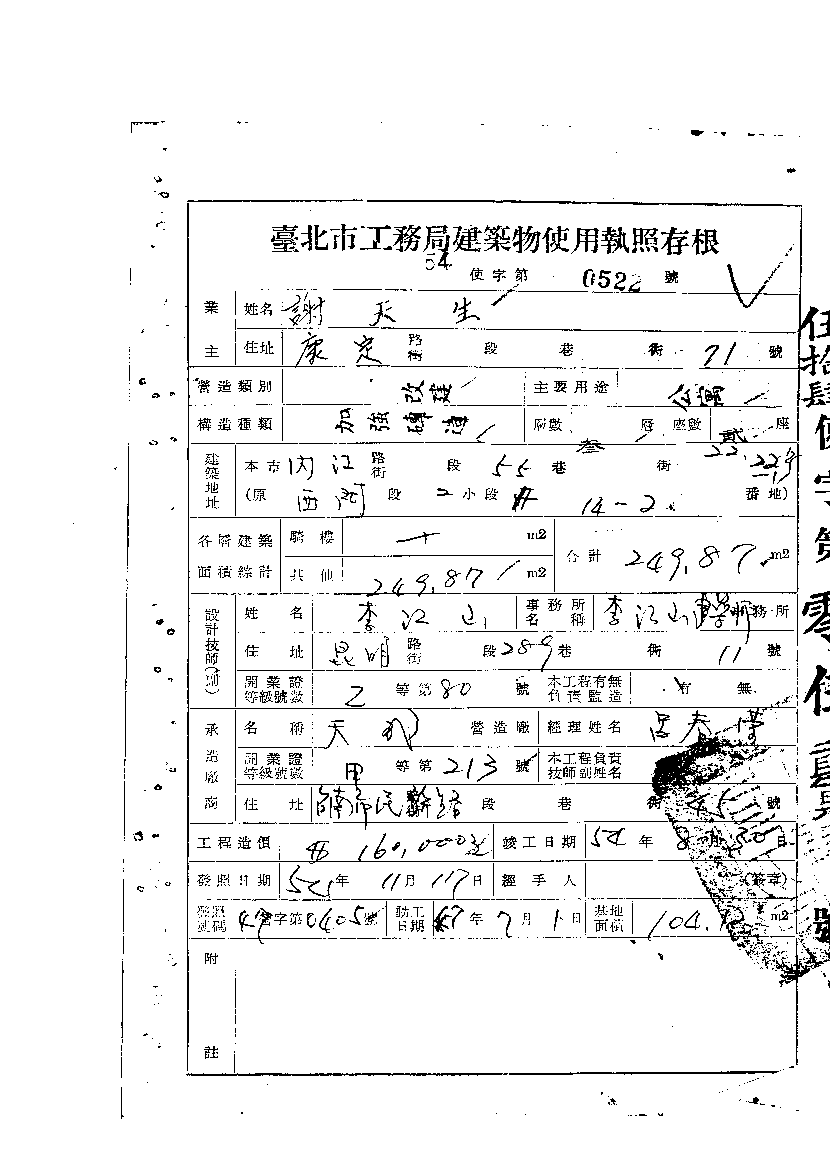 臺北市工務局建築物使用執照存根
54 使字第 0522 號
業主 姓名 謝天生
住址 康定 路街 段 巷 街 71 號
營造類別 改建 主要用途
構造種類 加強磚造 層數 叁 層 座數 貳 座
建築地址 本市 內江 路街 段 55 巷 街 22,
(原 西河段 二小段 14-2 番地)
各層建築面積綜計 騎樓 m2 合計 249.87 m2
其他 249.87 m2
設計技師(副) 姓名 李江山 事務所名稱 李江山建築師事務所
住址 昆明 路街 段 289 巷 街 11 號
開業證等級號數 乙 等第 80 號 本工程有無負責監造 有 無
承造廠商 名稱 天 營造廠 經理姓名 呂春
開業證等級號數 甲 等第 213 號 本工程負責技師副姓名
住址 段 巷 街 45 號
工程造價 160,000 竣工日期 54 年 8 月 30 日
發照日期 54 年 11 月 17 日 經手人 (簽章)
發照號碼 47 字第 0405 號 動工日期 47 年 7 月 1 日 基地面積 104. m2
附註
伍拾肆使字第零伍貳 號